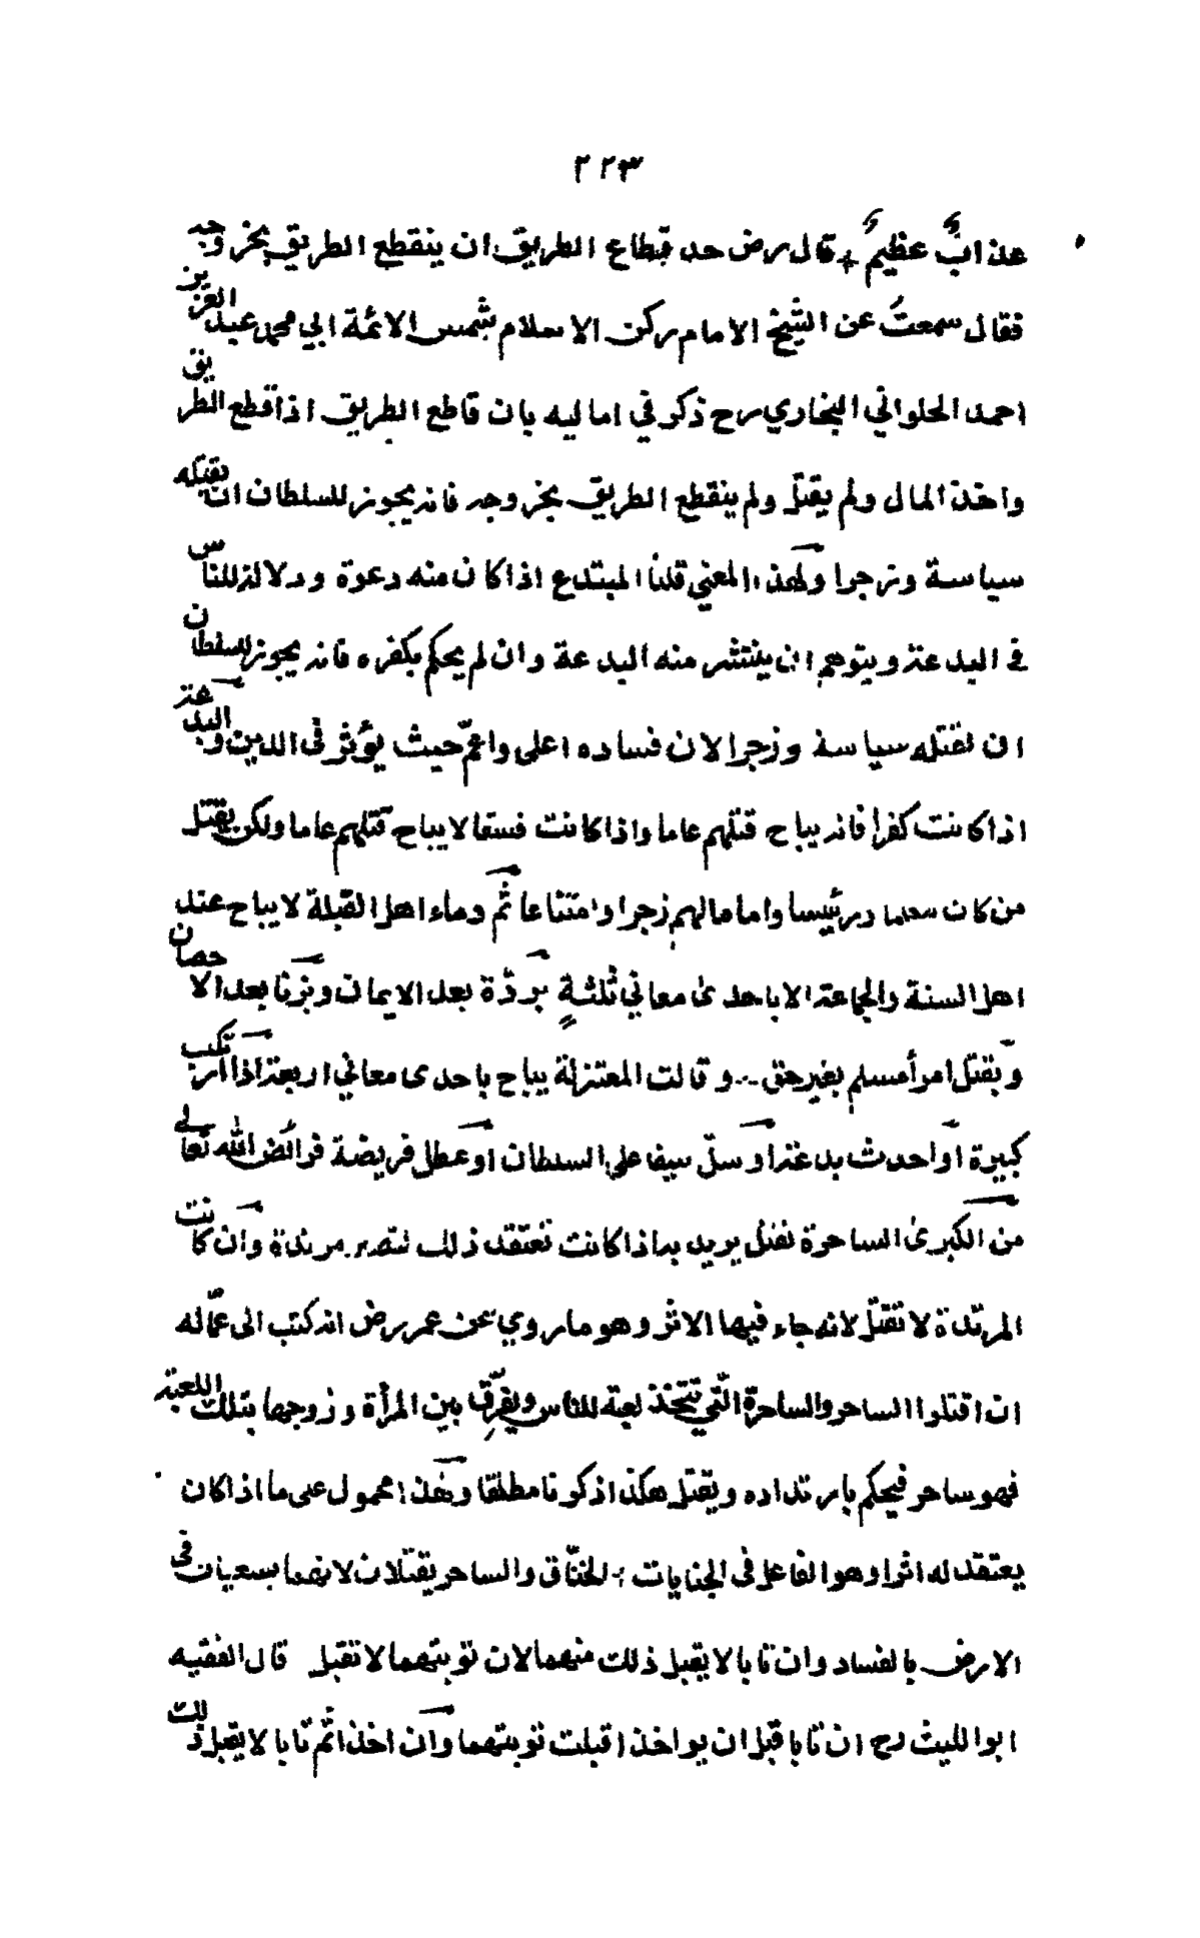 ٢٢٣
عذابٌ عظيمٌ قال رض حد قطاع الطريق ان ينقطع الطريق بخروجه
فقال سمعت عن الشيخ الامام ركن الاسلام شمس الائمة ابي محمد عبد العزيز
احمد الحلواني البخاري رح ذكر في اماليه بان قاطع الطريق اذا قطع الطريق
واخذ المال ولم يقتل ولم ينقطع الطريق بخروجه فانه يجوز للسلطان ان يقتله
سياسة وزجرا ولهذا المعني قلنا المبتدع اذا كان منه دعوة ودلالة للناس
في البدعة ويتوهم ان ينتشر منه البدعة وان لم يحكم بكفره فانه يجوز للسلطان
ان يقتله سياسة وزجرا لان فساده اعلى واعمّ حيث يؤثر في الدين والبدعة
اذا كانت كفرا فانه يباح قتلهم عاما واذا كانت فسقا لا يباح قتلهم عاما ولكن يقتل
من كان معلما ورئيسا واماما لهم زجرا وامتناعا ثم دماء اهل القبلة لا يباح عند
اهل السنة والجماعة الا باحدى معاني ثلثة بردّة بعد الايمان وبزنا بعد الاحصان
وبقتل امرأ مسلم بغير حق وقالت المعتزلة يباح باحدى معاني اربعة اذا ارتكب
كبيرة او احدث بدعة او سلّ سيفا علي السلطان او عطل فريضة فرائض الله تعالي
من الكبرى الساحرة تقتل يريد به اذا كانت تعتقد ذلك لتصير مرتدة وان كانت
المرتدة لا تقتل لانه جاء فيها الاثر وهو ما روي عن عمر رض انه كتب الى عمّاله
ان اقتلوا الساحر والساحرة الّتي تتخذ لعبة للناس ويفرّق بين المرأة وزوجها بتلك اللعبة
فهو ساحر فيحكم بارتداده ويقتل هكذا ذكرنا مطلقا وهذا محمول على ما اذا كان
يعتقد له اثرا وهو الفاعل في الجنايات الخنّاق والساحر يقتلان لانهما يسعيان في
الارض بالفساد وان تابا لا يقبل ذلك منهما لان توبتهما لا تقبل قال الفقيه
ابو الليث رح ان تابا قبل ان يواخذا قبلت توبتهما وان اخذا ثم تابا لا يقبل ذلك